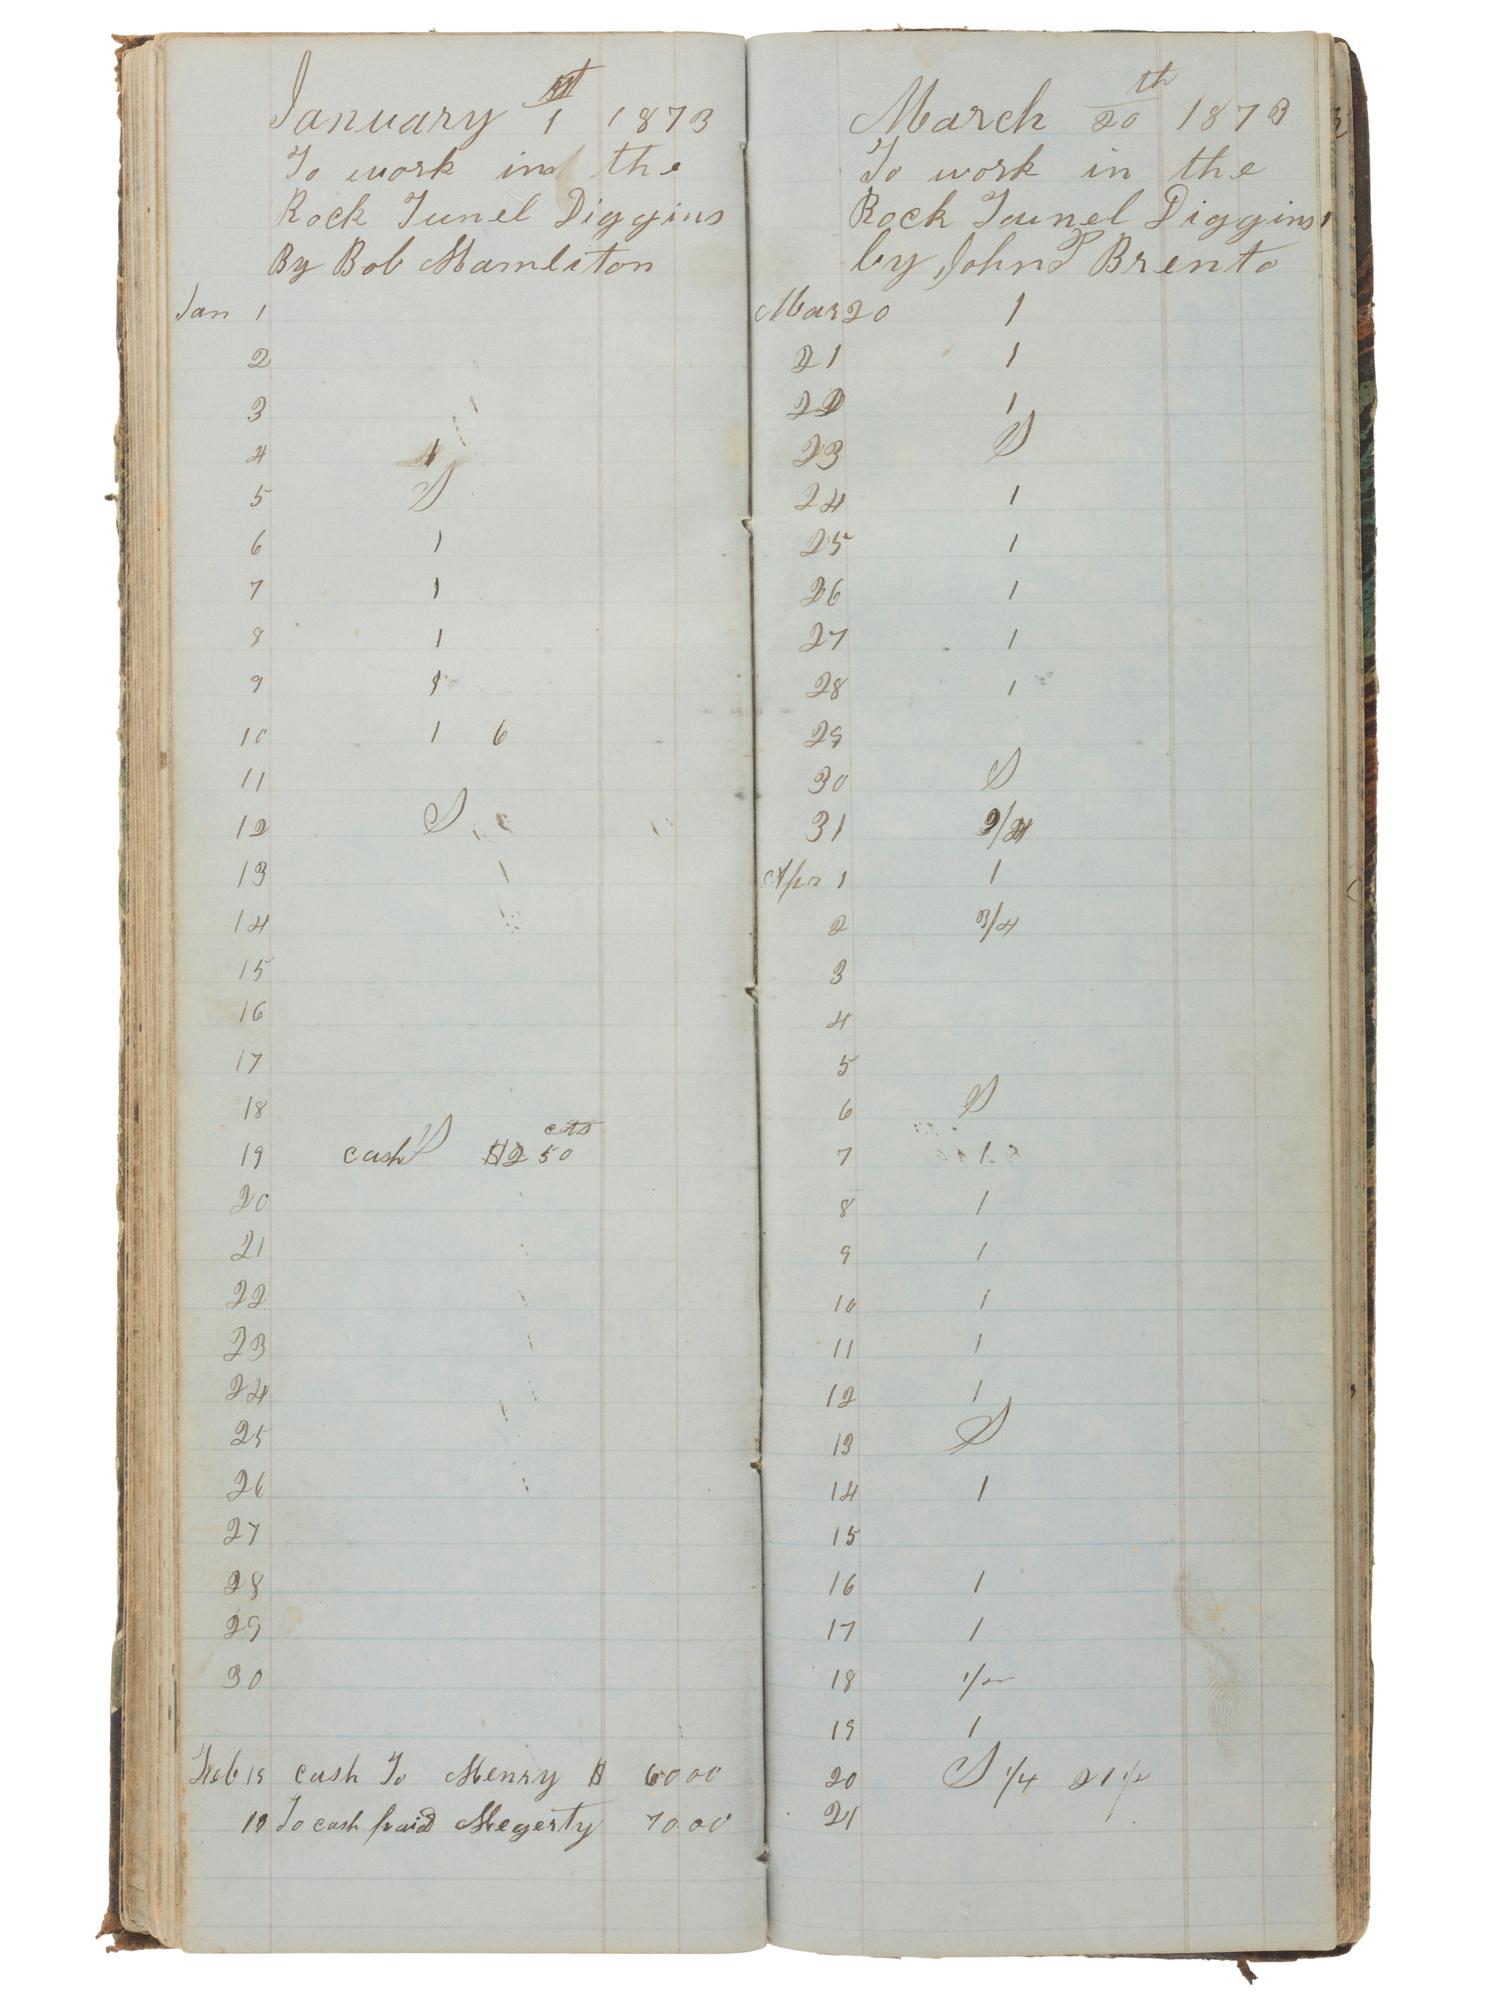 January 1st 1873
To work in the
Rock Tunel Diggins
By Bob Hamliton
Jan 1
2
3
4 1
5 S
6 1
7 1
8 1
9 1
10 1 6
11
12 S
13
14
15
16
17
18
19 cash S $2 50 cts
20
21
22
23
24
25
26
27
28
29
30
Feb 15 cash To Henry $ 60 00
19 To cash paid Hegerty 70 00
March 20th 1873
To work in the
Rock Tunel Diggins
by John P Brento
Mar 20 1
21 1
22 1
23 S
24 1
25 1
26 1
27 1
28 1
29
30 S
31 3/4
Apr 1 1
2 3/4
3
4
5
6 S
7 1
8 1
9 1
10 1
11 1
12 1
13 S
14 1
15
16 1
17 1
18 1/2
19 1
20 S 1/4 21 1/2
21